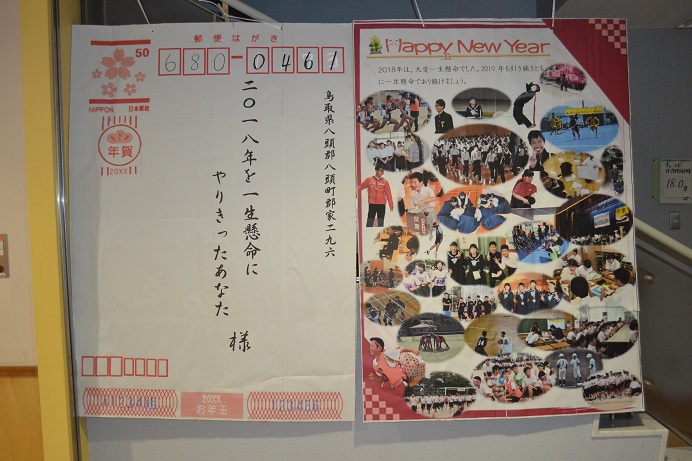 郵便はがき
50
NIPPON 日本郵便
680-0461
年賀
20XX
鳥取県八頭郡八頭町郡家二九六
二〇一八年を一生懸命に
やりきったあなた 様
20XX
お年玉
Happy New Year
2018年は、大変一生懸命でした。2019年も引き続きとも
に一生懸命であり続けましょう。
18.0